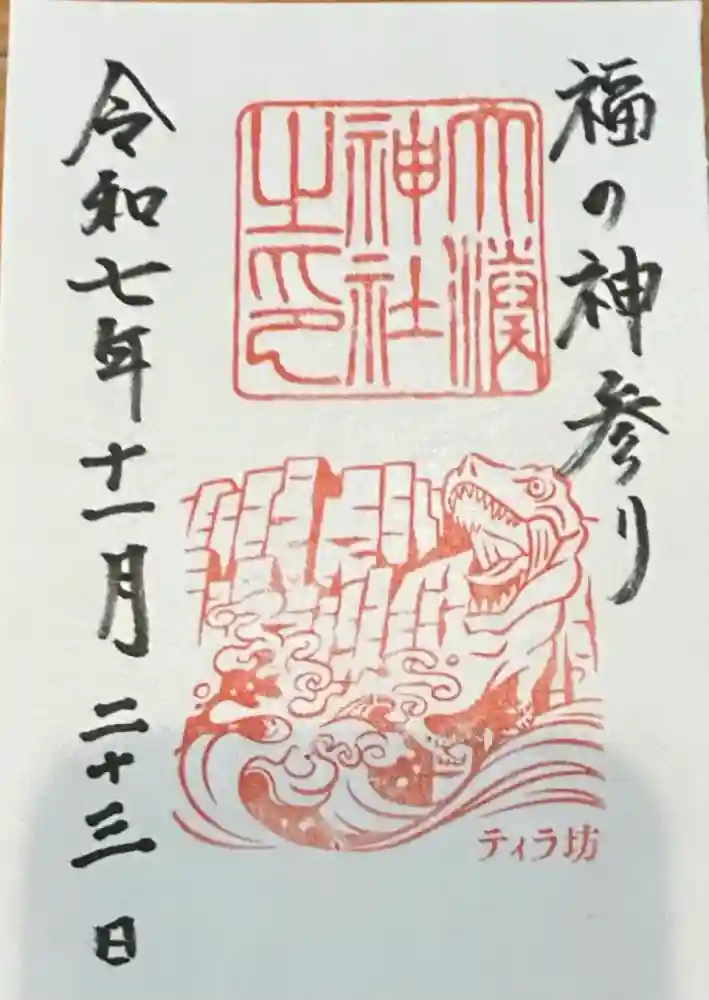 福の神参り
大湊神社之印
ティラ坊
令和七年十一月二十三日